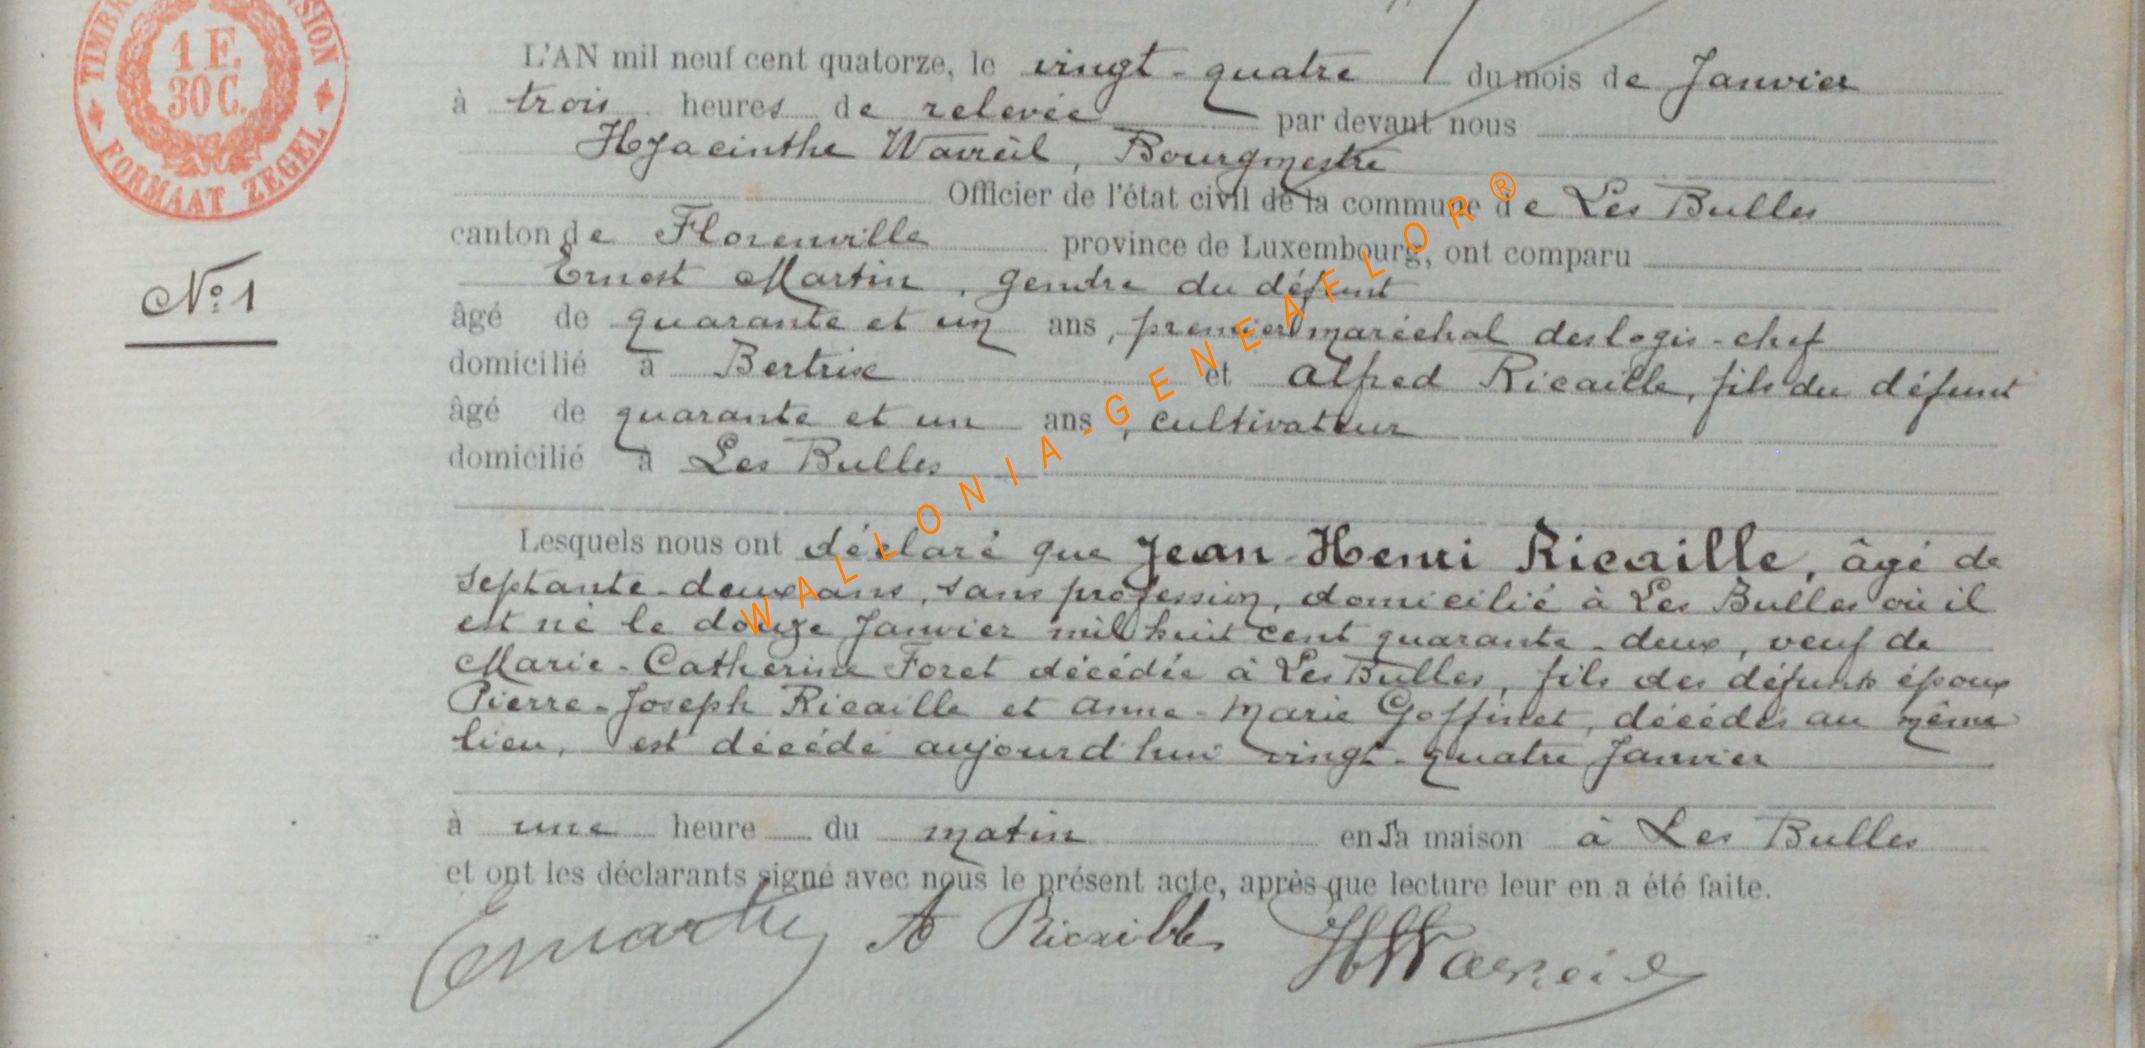 TIMBRE
1 F.
30 C.
FORMAAT ZEGEL
L'AN mil neuf cent quatorze, le vingt-quatre du mois de Janvier
à trois heures de relevée par devant nous
Hyacinthe Bourgmestre
Officier de l'état civil de la commune de Les Bulles
canton de Florenville province de Luxembourg, ont comparu
Ernest Martin, gendre du défunt
N° 1
âgé de quarante et un ans, premier maréchal des logis-chef
domicilié à Bertrix et Alfred Ricaille, fils du défunt
âgé de quarante et un ans, cultivateur
domicilié à Les Bulles
Lesquels nous ont déclaré que Jean-Henri Ricaille, âgé de
septante-deux ans, sans profession, domicilié à Les Bulles où il
est né le douze Janvier mil huit cent quarante-deux, veuf de
Marie-Catherine Foret décédée à Les Bulles, fils des défunts époux
Pierre-Joseph Ricaille et Anne-Marie Goffinet, décédés au même
lieu, est décédé aujourd'hui vingt-quatre Janvier
à une heure du matin en sa maison à Les Bulles
et ont les déclarants signé avec nous le présent acte, après que lecture leur en a été faite.
EMartin A Ricaille
WALLONIA-GENEAFLOR®